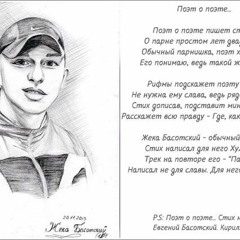 Поэт о поэте..
Поэт о поэте пишет ст
О парне простом лет два
Обычный парнишка, поэт х
Его понимаю, ведь такой ж
Рифмы подскажет поэту
Не нужна ему слава, ведь ряд
Стих дописав, подставит мин
Расскажет всю правду - Где, как
Жека Басотский - обычный
Стих написал для него Ху
Трек на повторе его - "Па
Написал не для славы. Для него
20.11.2013
Жека Басотский
PS: Поэт о поэте.. Стих н
Евгений Басотский. Кирил